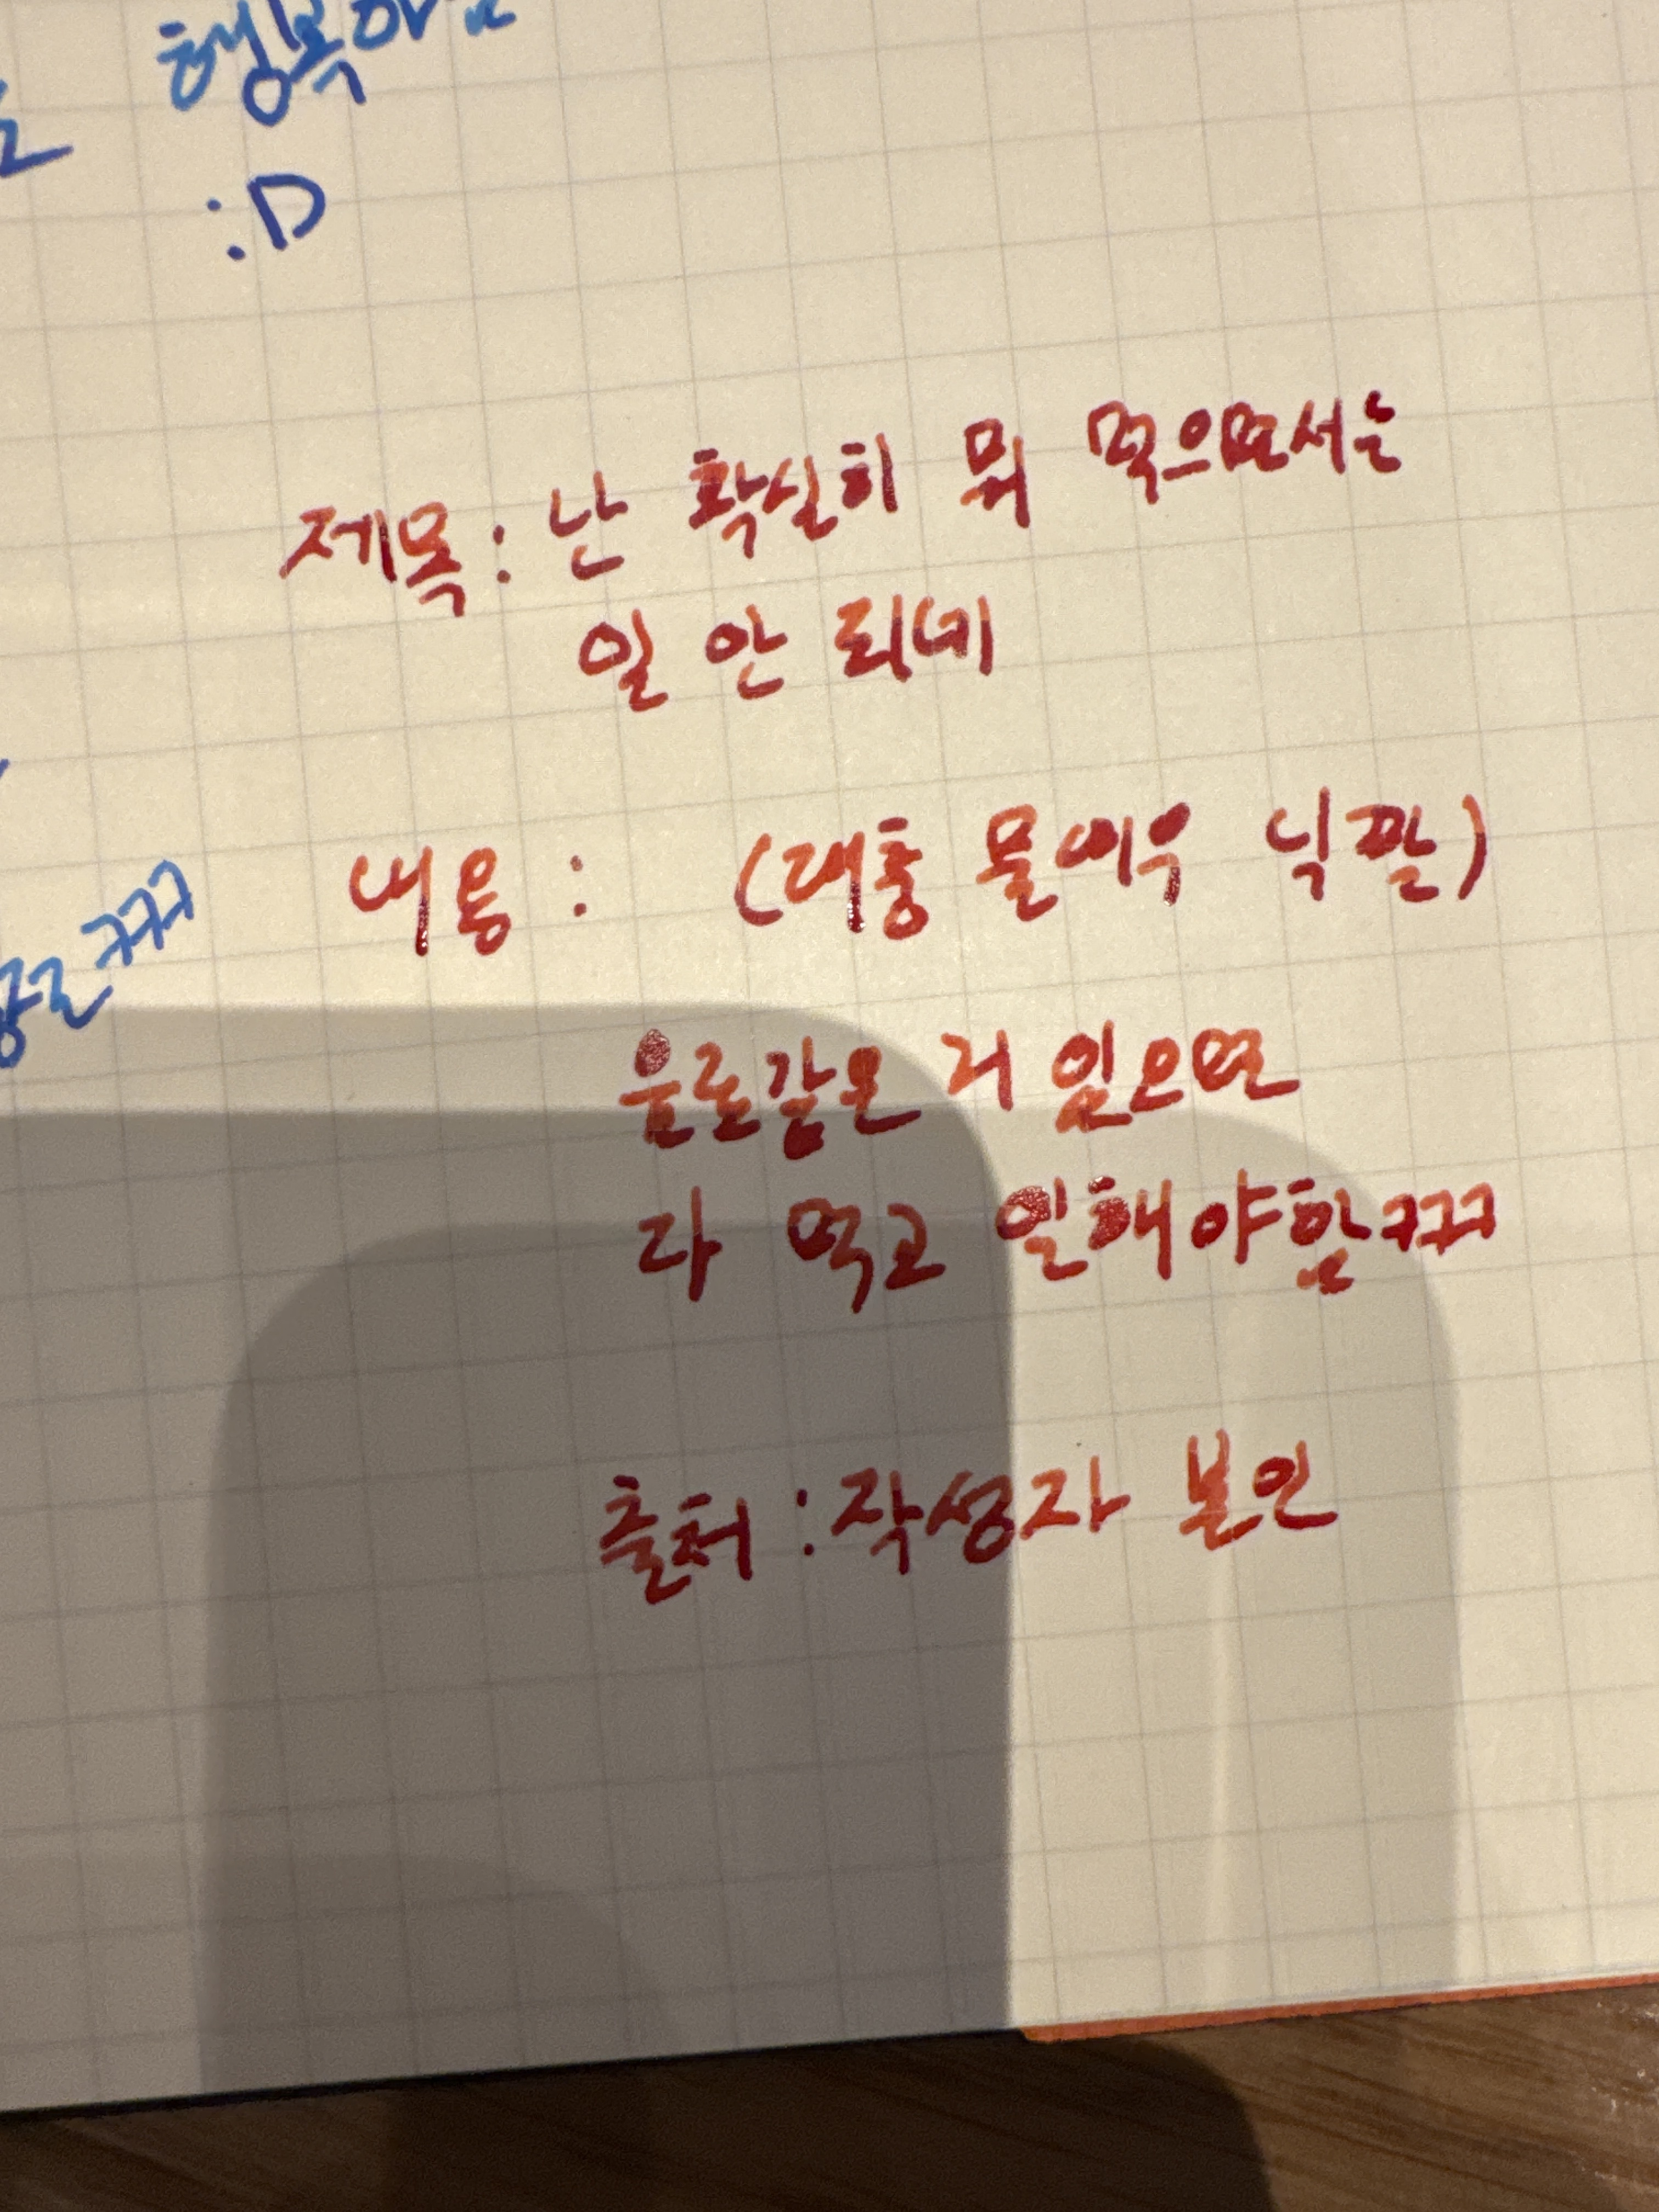 행복
:D
제목: 난 확실히 뭐 먹으면서는
일 안 되네
내용: (대충 물여우 닉팔)
ㅋㅋㅋ
음료같은 거 있으면
다 먹고 일해야함ㅋㅋㅋ
출처: 작성자 본인